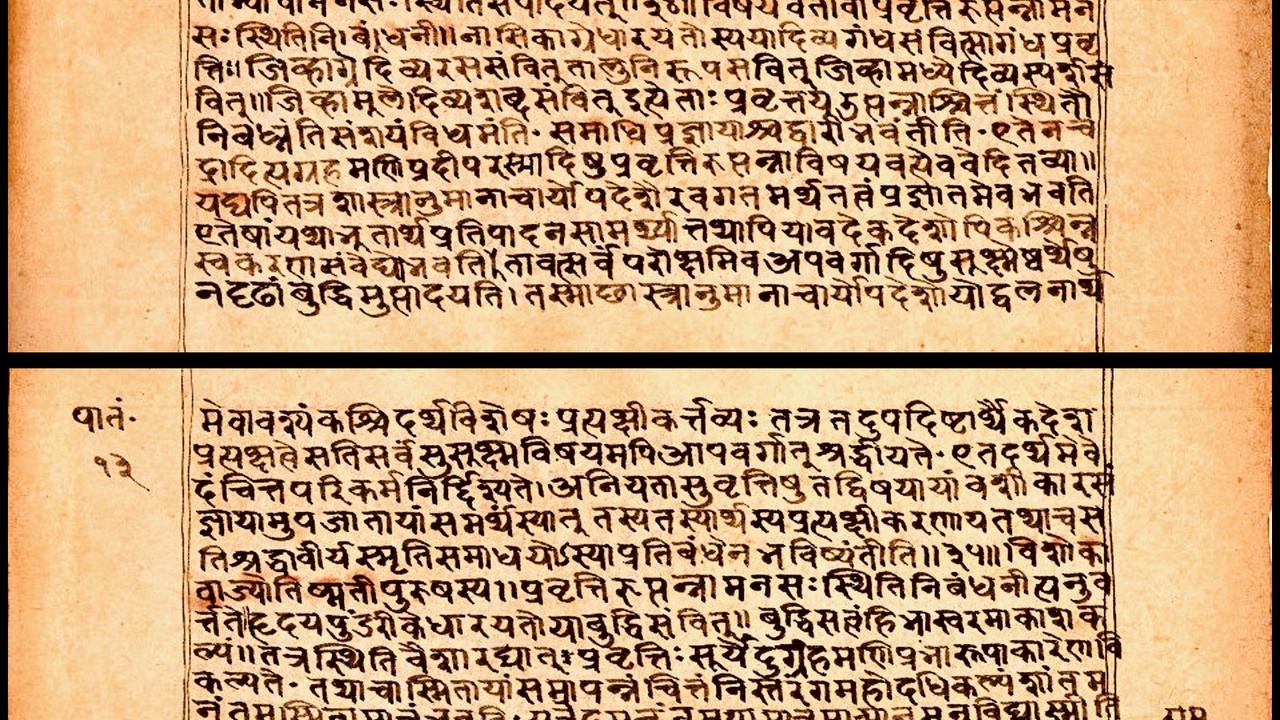 सः स्थितिनिबंधनी॥ नासिकाग्रे धारयतोस्य या दिव्यगंधसंवित्सा गंधप्रवृ
त्तिः। जिव्हाग्रे दिव्यरससंवित् तालुनि रूपसंवित् जिव्हामध्ये दिव्यस्पर्शसं
वित्॥ जिव्हामूले दिव्यशब्दसंवित् इत्येताः प्रवृत्तय उत्पन्नाश्चित्तं स्थितौ
निबध्नंति संशयं विधमंति॰ समाधिप्रज्ञायाश्च द्वारीभवंतीति॰ एतेन चं
द्रादित्यग्रहमणिप्रदीपरस्मादिषु प्रवृत्तिरुत्पन्ना विषयवत्येव वेदितव्या॥
यद्यपि तत्र शास्त्रानुमानाचार्योपदेशैरवगतमर्थतत्वं प्रज्ञातमेव भवति
एतेषां यथाभुतार्थप्रतिपादनसामर्थ्यात् तथापि यावदेकदेशोपि कश्चिन्न
स्वकरणसंवेद्यो भवति। तावत्सर्वं परोक्षमिव अपवर्गादिषु सुक्ष्मेष्वर्थेषु
न दृढां बुद्धिमुत्पादयति। तस्माछास्त्रानुमानाचार्योपदेशोपोद्वलनार्थ
पातं॰
१३
मेवावश्यं कश्चिदर्थविशेषः प्रत्यक्षीकर्त्तव्यः तत्र तदुपदिष्टार्थैकदेश
प्रत्यक्षत्वे सति सर्वं सुसूक्ष्मविषयमपि आपवर्गात् श्रद्धीयते॰ एतदर्थमेवे
दं चित्तपरिकर्म निर्द्दिश्यते। अनियतासु वृत्तिषु तद्विषयायां वशीकारसं
ज्ञायामुपजातायां समर्थं स्यात् तस्य तस्यार्थस्य प्रत्यक्षीकरणाय तथा च स
ति श्रद्धावीर्यस्मृतिसमाधयोऽस्याप्रतिबंधेन भविष्यंतीति॥ ३५॥ विशोका
वा ज्योतिष्मती पुरुषस्य॥ प्रवृत्तिरुत्पन्ना मनसः स्थितिनिबंधनीत्यनुव
र्त्तते हृदयपुंडरीके धारयतो या बुद्धिसंवित्॥ बुद्धिसत्वं हि भास्वरमाकाशक
ल्पं॥ तत्र स्थितिवैशारद्यात् प्रवृत्तिः सूर्येंदुग्रहमणिप्रभारूपाकारेण वि
कल्पते॰ तथाचास्मितायां समापन्नं चित्तं निस्तरंगमहोदधिकल्पं शांतम